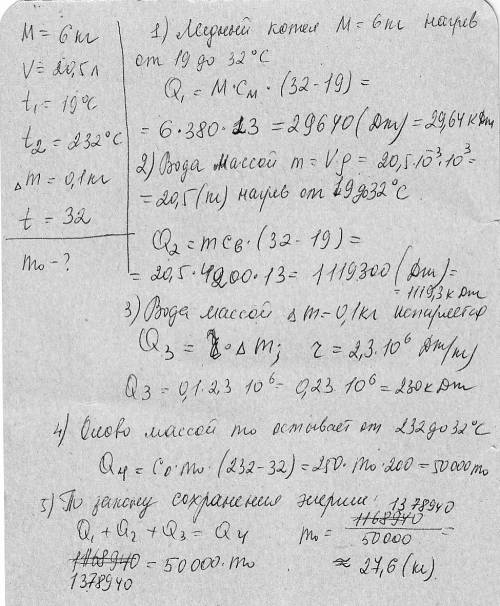 M = 6 кг
V = 20,5 л
t₁ = 19°C
t₂ = 232°C
Δm = 0,1 кг
t = 32
m₀ - ?
1) Медный котел M = 6 кг нагрев
от 19 до 32°C
Q₁ = M·Cм·(32-19) =
= 6·380·13 = 29640 (Дж) = 29,64 кДж
2) Вода массой m = Vρ = 20,5·10⁻³·10³ =
= 20,5 (кг) нагрев от 19 до 32°C
Q₂ = mCв·(32-19) =
= 20,5·4200·13 = 1119300 (Дж) =
= 1119,3 кДж
3) Вода массой Δm = 0,1 кг испаряется
Q₃ = r·Δm; r = 2,3·10⁶ Дж/кг
Q3 = 0,1·2,3 10⁶ = 0,23·10⁶ = 230 кДж
4) Олово массой m₀ остывает от 232 до 32°C
Q₄ = C₀·m₀·(232-32) = 250·m₀·200 = 50000 m₀
5) По закону сохранения энергии:
Q₁ + Q₂ + Q₃ = Q₄
1168940 = 50000·m₀
1378940
m₀ = 1378940
1168940
50000 =
≈ 27,6 (кг)